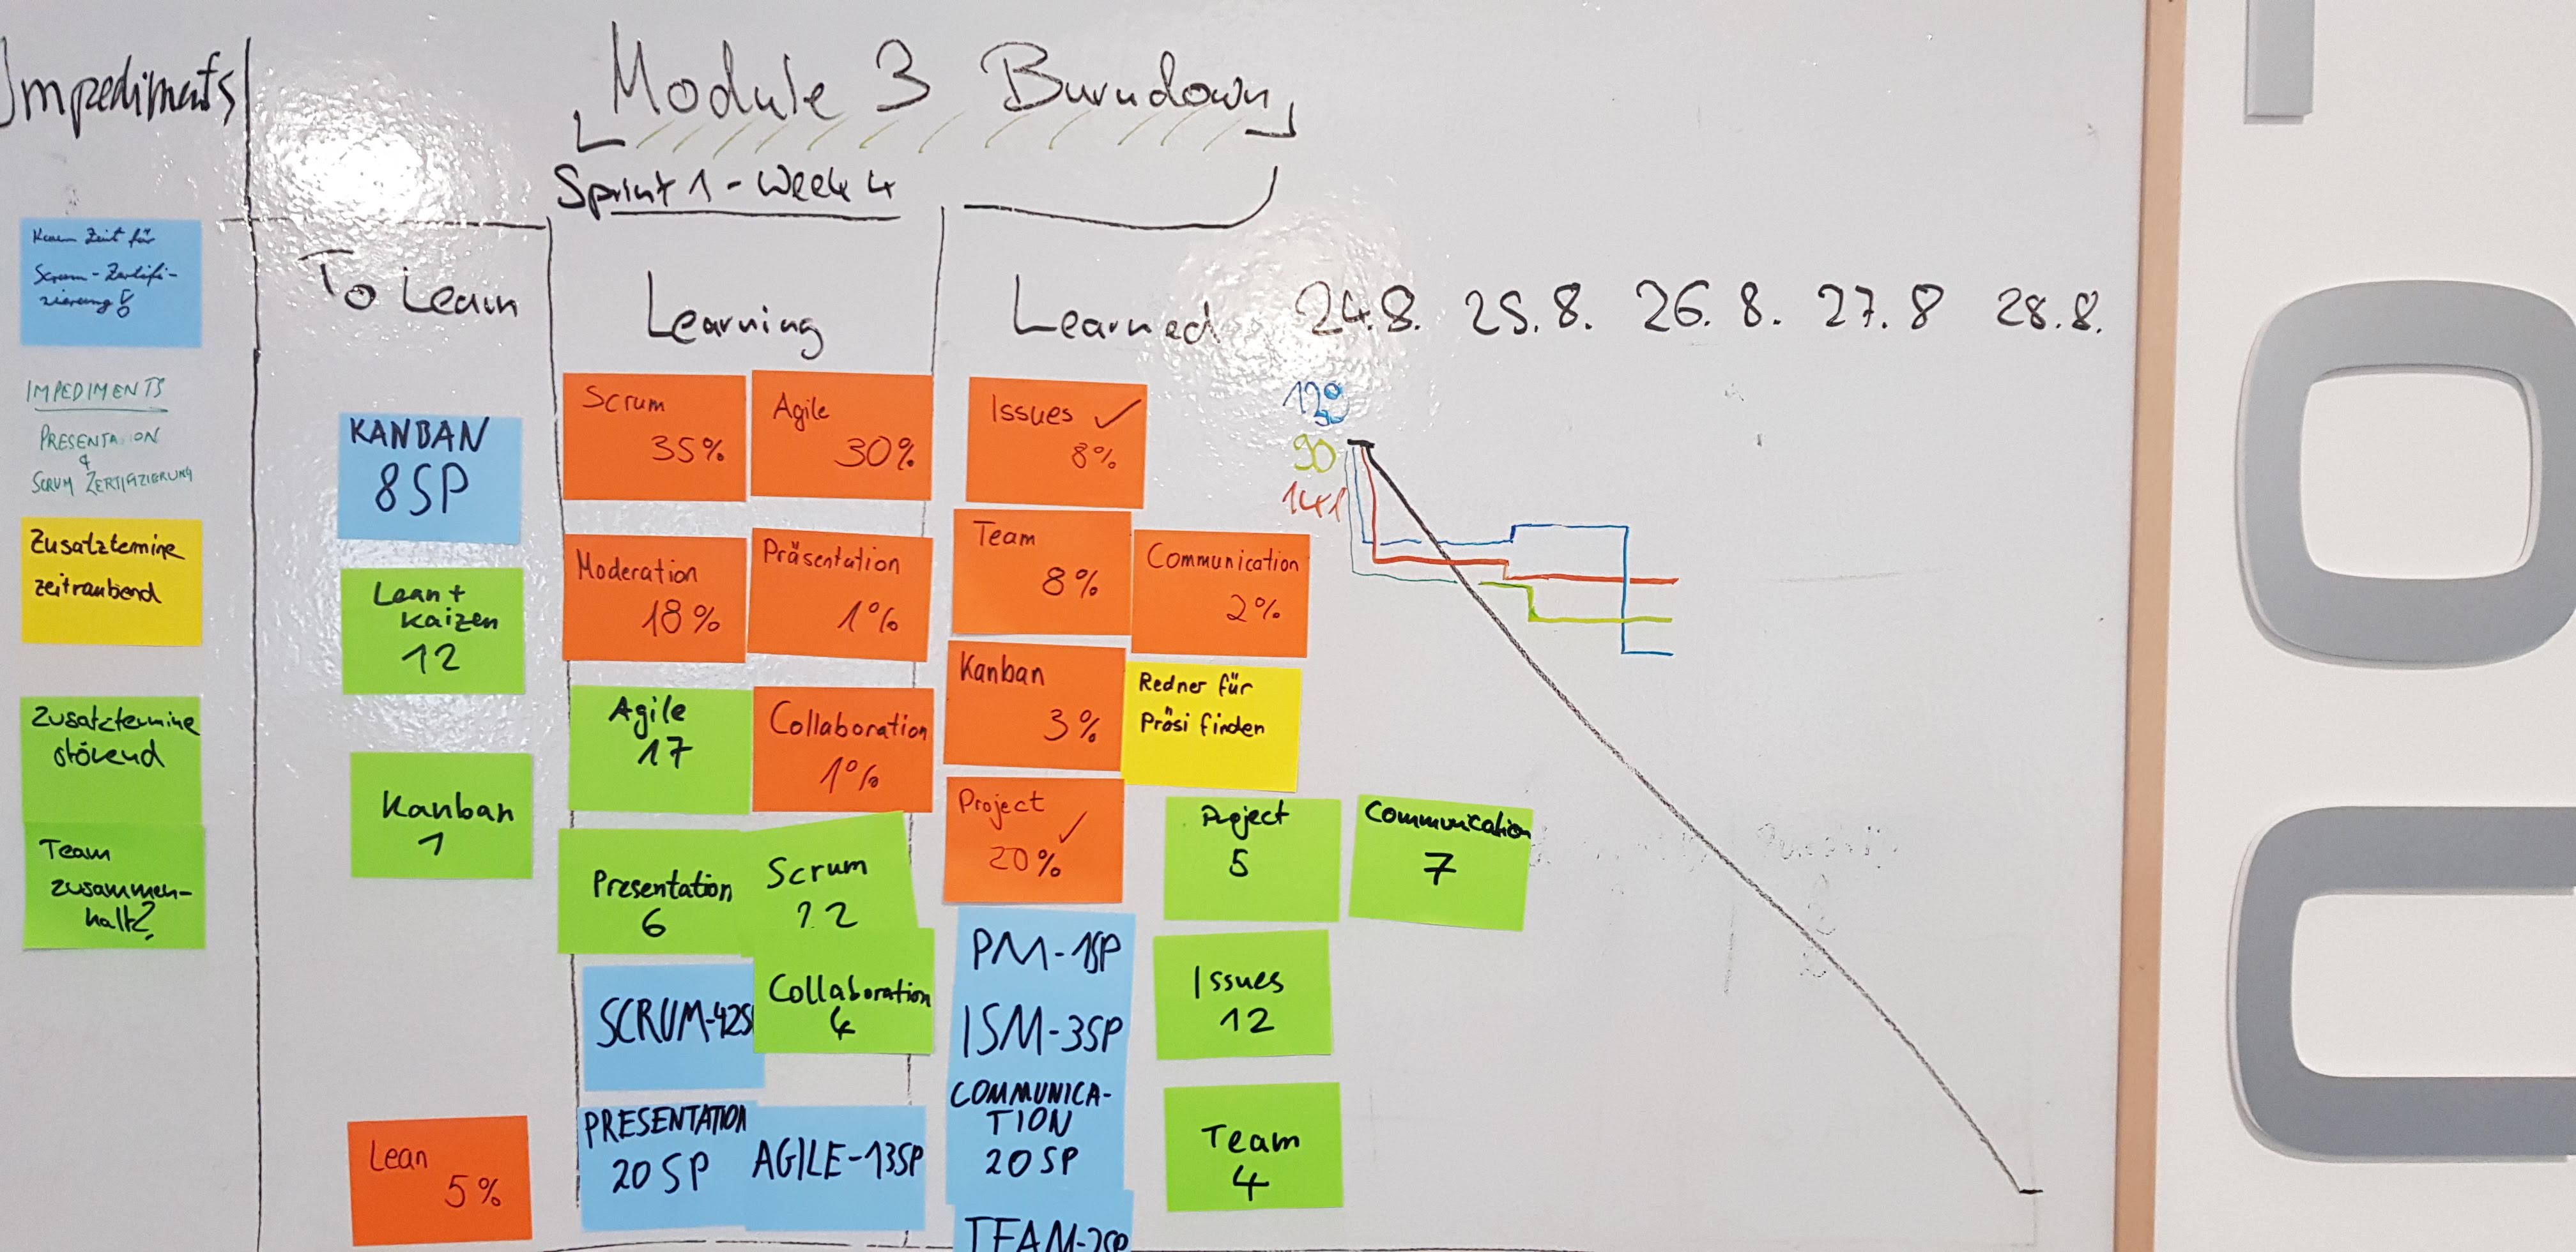 Impediments
Module 3 Burndown
Sprint 1 - Week 4
To Learn
Learning
Learned
24.8. 25.8. 26.8. 27.8 28.8.
Zeit für
Scrum-Zertifi-
zierung
IMPEDIMENTS
PRESENTATION
&
SCRUM ZERTIFIZIERUNG
Zusatztermine
zeitraubend
Zusatztermine
störend
Team
zusammen-
halt?
KANBAN
8SP
Lean +
Kaizen
12
Kanban
1
Lean
5%
Scrum
35%
Agile
30%
Moderation
18%
Präsentation
1%
Agile
17
Collaboration
1%
Presentation
6
Scrum
22
Collaboration
4
SCRUM-42S
PRESENTATION
20 SP
AGILE-13SP
Issues ✓
8%
Team
8%
Communication
2%
Kanban
3%
Redner für
Präsi finden
Project ✓
20%
Project
5
Communication
7
PM-1SP
ISM-3SP
COMMUNICA-
TION
20SP
TEAM-2SP
Issues
12
Team
4
90
141